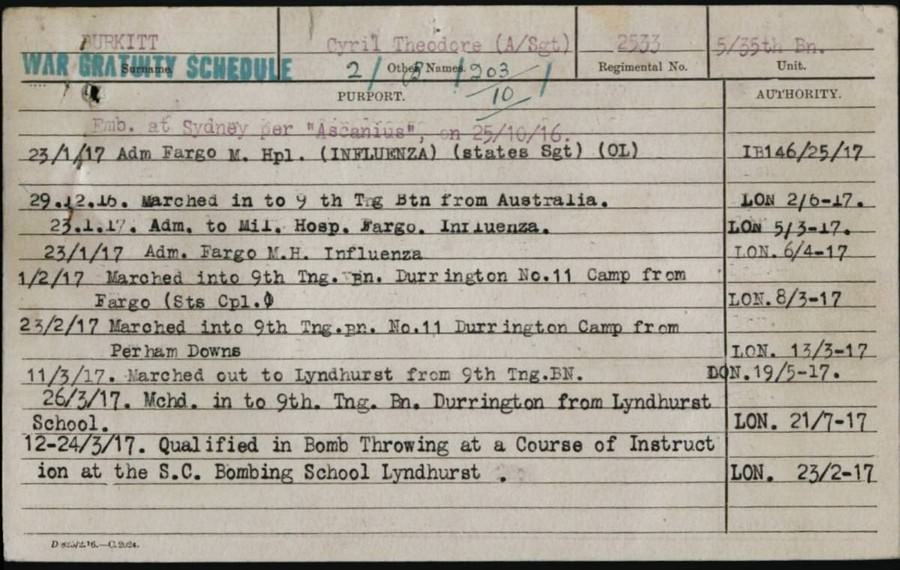 BURKITT Cyril Theodore (A/Sgt) 2533 5/35th Bn.
WAR GRATUITY SCHEDULE
Surname. Other Names. Regimental No. Unit.
2/ 903/10
PURPORT. AUTHORITY.
Emb. at Sydney per "Ascanius", on 25/10/16.
23/1/17 Adm Fargo M. Hpl. (INFLUENZA) (states Sgt) (OL) IB146/25/17
29.12.16. Marched in to 9 th Tng Btn from Australia. LON 2/6-17.
23.1.17. Adm. to Mil. Hosp. Fargo. Influenza. LON 5/3-17.
23/1/17 Adm. Fargo M.H. Influenza LON. 6/4-17
1/2/17 Marched into 9th Tng. Bn. Durrington No.11 Camp from
Fargo (Sts Cpl.) LON. 8/3-17
23/2/17 Marched into 9th Tng.Bn. No.11 Durrington Camp from
Perham Downs LON. 13/3-17
11/3/17. Marched out to Lyndhurst from 9th Tng.BN. DON.19/5-17.
26/3/17. Mchd. in to 9th. Tng. Bn. Durrington from Lyndhurst
School. LON. 21/7-17
12-24/3/17. Qualified in Bomb Throwing at a Course of Instruct
ion at the S.C. Bombing School Lyndhurst . LON. 23/2-17